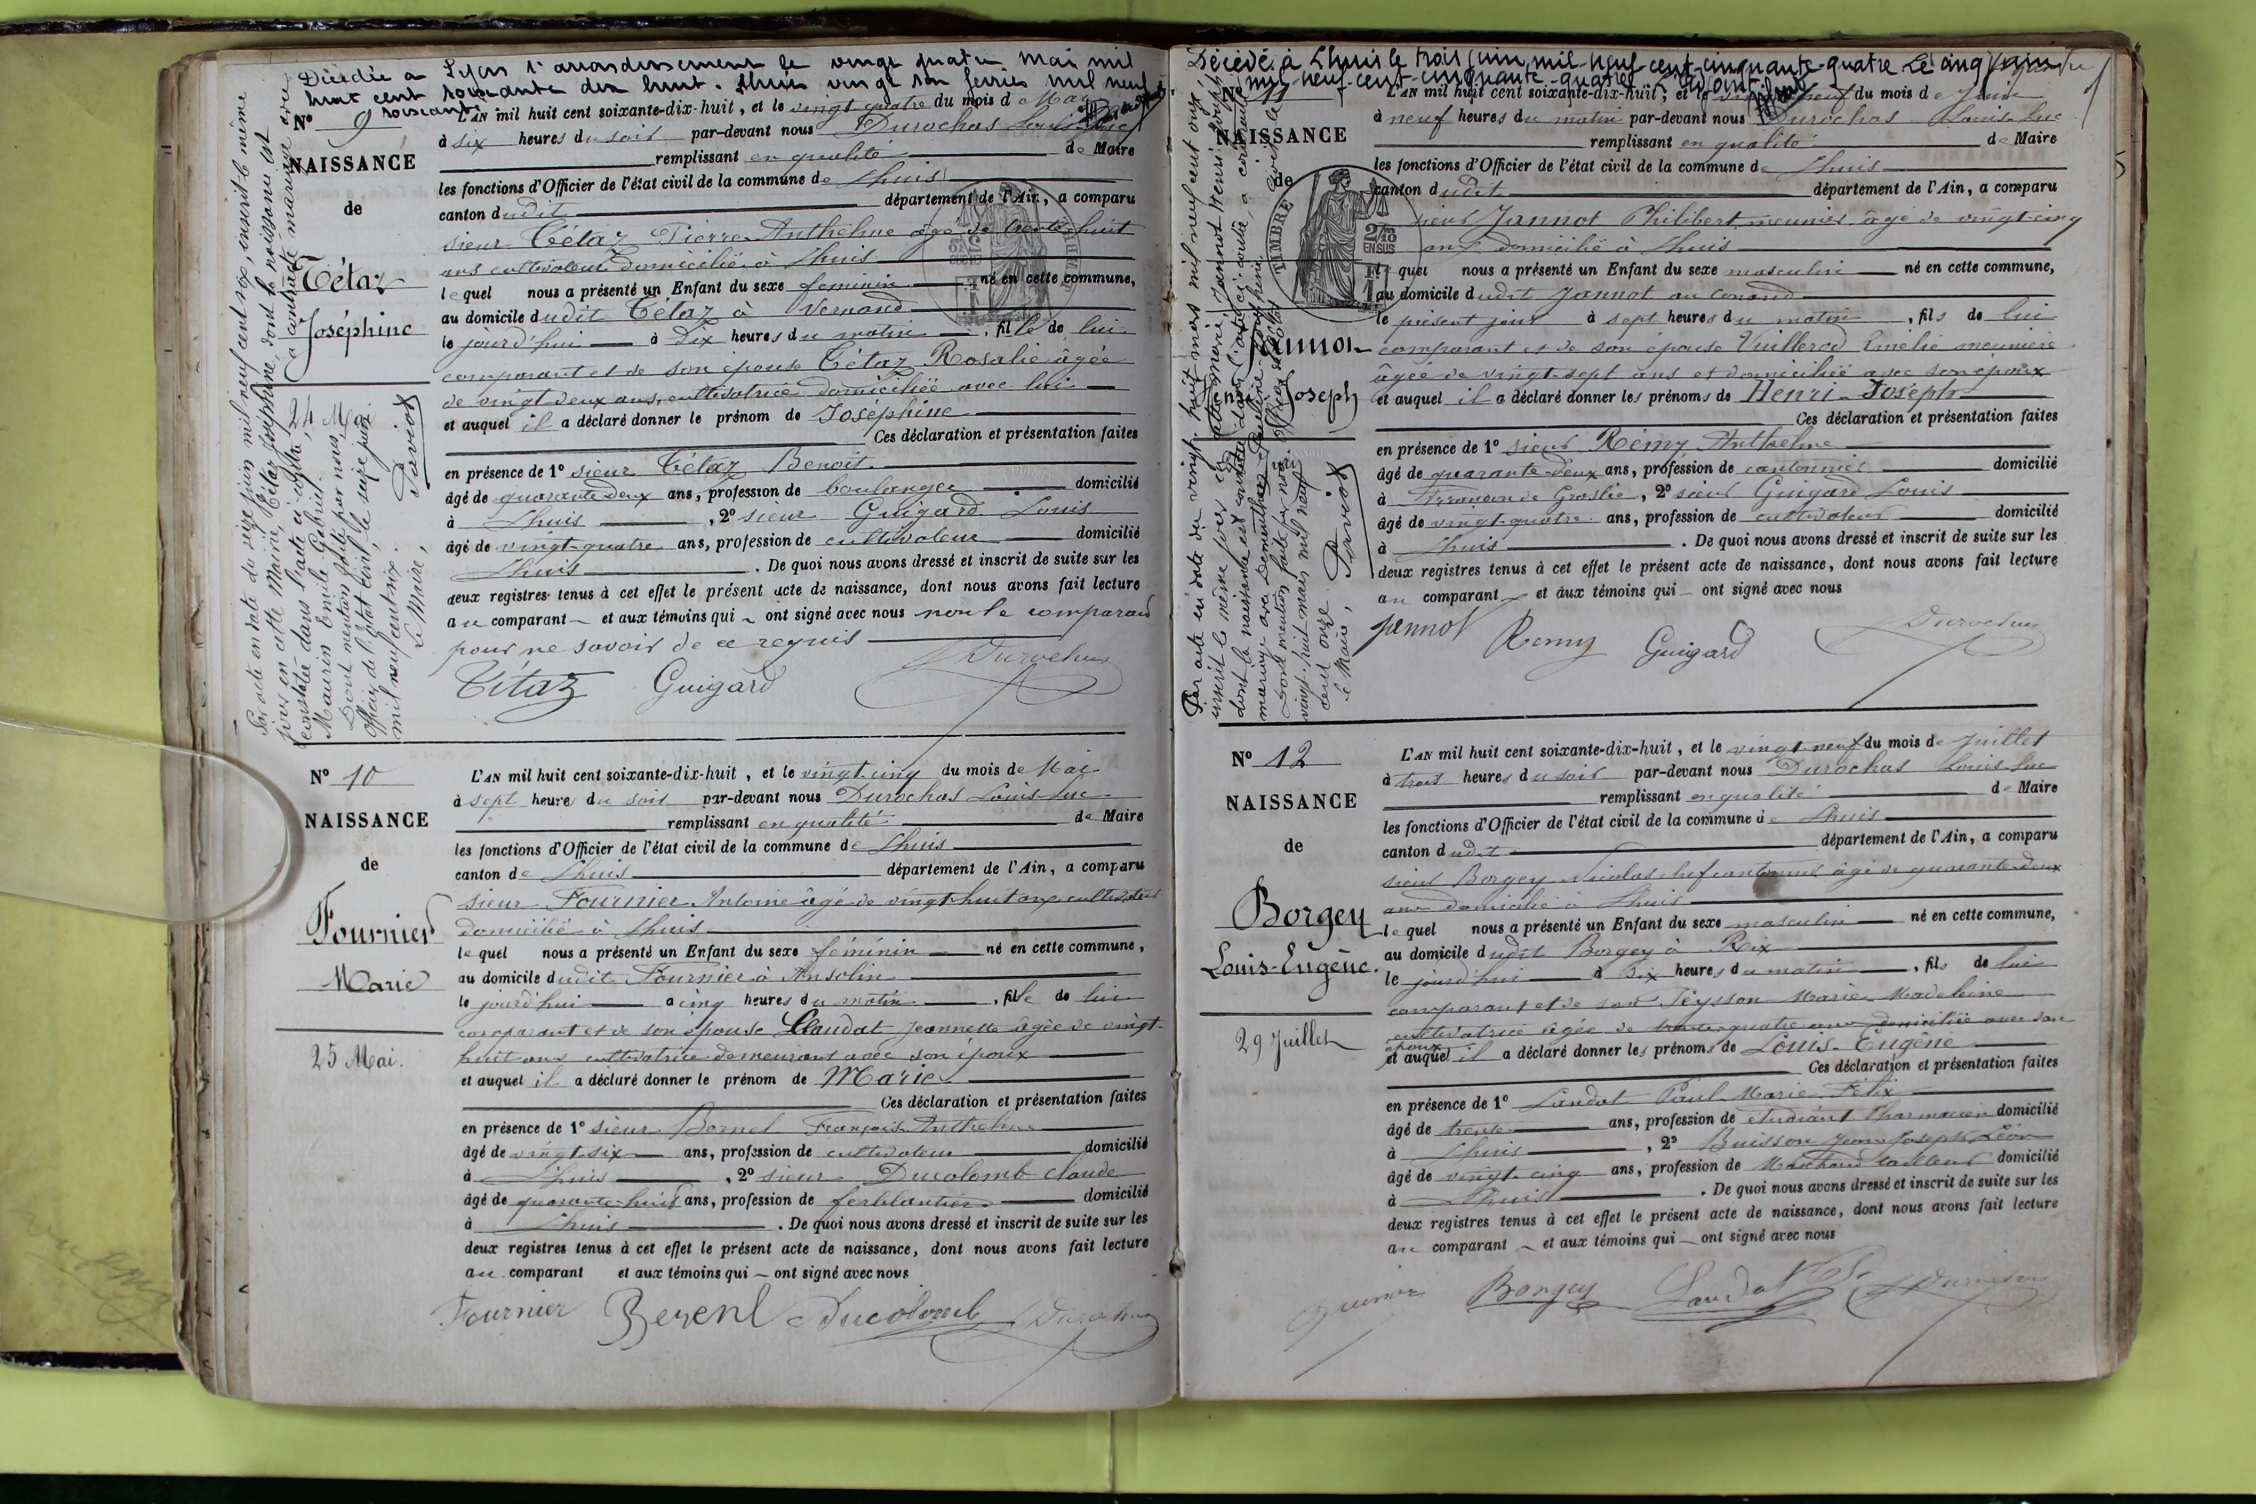 Décédée à Lyon 1er arrondissement le vingt quatre Mai mil
huit cent soixante dix huit. Lhuis vingt six février mil neuf
soixante
N° 9
NAISSANCE
de
Tétaz
Joséphine
24 Mai
Par acte en date du seize juin mil neuf cent six, inscrit le même
jour en cette Mairie, Tétaz Joséphine, dont la naissance est
constatée dans l'acte ci-contre, a contracté mariage avec
Maurin Emile Gabriel.
Dont mention faite par nous,
Officier de l'état civil, le seize juin
mil neuf cent six.
Le Maire,
Parvioz
L'AN mil huit cent soixante-dix-huit, et le vingt quatre du mois de Mai
à six heures du soir par-devant nous Durochas Louis Luc
remplissant en qualité de Maire
les fonctions d'Officier de l'état civil de la commune de Lhuis
canton dudit département de l'Ain, a comparu
sieur Tétaz Pierre Anthelme âgé de trente-huit
ans cultivateur domicilié à Lhuis
lequel nous a présenté un Enfant du sexe féminin né en cette commune,
au domicile dudit Tétaz à Vernand
le jourd'hui à Dix heures du matin, fille de lui
comparant et de son épouse Tétaz Rosalie âgée
de vingt deux ans, cultivatrice domiciliée avec lui
et auquel il a déclaré donner le prénom de Joséphine
Ces déclaration et présentation faites
en présence de 1° sieur Tétaz Benoit
âgé de quarante deux ans, profession de boulanger domicilié
à Lhuis, 2° sieur Guigard Louis
âgé de vingt-quatre ans, profession de cultivateur domicilié
Lhuis. De quoi nous avons dressé et inscrit de suite sur les
deux registres tenus à cet effet le présent acte de naissance, dont nous avons fait lecture
au comparant et aux témoins qui ont signé avec nous non le comparant
pour ne savoir de ce requis
Tétaz Guigard Durochas
N° 10
NAISSANCE
de
Fournier
Marie
25 Mai.
L'AN mil huit cent soixante-dix-huit, et le vingt-cinq du mois de Mai
à sept heures du soir par-devant nous Durochas Louis Luc
remplissant en qualité de Maire
les fonctions d'Officier de l'état civil de la commune de Lhuis
canton de Lhuis département de l'Ain, a comparu
sieur Fournier Antoine âgé de vingt-huit ans cultivateur
domicilié à Lhuis
lequel nous a présenté un Enfant du sexe féminin né en cette commune,
au domicile dudit Fournier à Ansolin
le jourd'hui à cinq heures du matin, fille de lui
comparant et de son épouse Claudat Jeannette âgée de vingt-
huit ans cultivatrice demeurant avec son époux
et auquel il a déclaré donner le prénom de Marie
Ces déclaration et présentation faites
en présence de 1° sieur Bornel François Anthelme
âgé de vingt-six ans, profession de cultivateur domicilié
à Lhuis, 2° sieur Ducolomb Claude
âgé de quarante-huit ans, profession de ferblantier domicilié
à Lhuis. De quoi nous avons dressé et inscrit de suite sur les
deux registres tenus à cet effet le présent acte de naissance, dont nous avons fait lecture
au comparant et aux témoins qui ont signé avec nous
Fournier Ducolomb Durochas
Décédé à Lhuis le trois juin mil neuf cent cinquante-quatre. Le cinq juin
mil-neuf-cent-cinquante-quatre. L'adjoint
NAISSANCE
de
Jannot
Henri Joseph
Par acte en date du vingt-huit mars mil neuf cent onze,
inscrit le même jour Jannot Henri Joseph
dont la naissance est constatée dans l'acte ci-contre, a contracté
mariage avec
Dont mention faite par nous, Officier de l'état civil, le
vingt-huit mars mil neuf
cent onze.
Le Maire, Parvioz
TIMBRE
2/10 EN SUS
L'AN mil huit cent soixante-dix-huit, et le vingt-neuf du mois de Juin
à neuf heures du matin par-devant nous Durochas Louis Luc
remplissant en qualité de Maire
les fonctions d'Officier de l'état civil de la commune de Lhuis
canton dudit département de l'Ain, a comparu
sieur Jannot Philibert, meunier, âgé de vingt-cinq
ans domicilié à Lhuis
lequel nous a présenté un Enfant du sexe masculin né en cette commune,
au domicile dudit Jannot au Conand
le présent jour à sept heures du matin, fils de lui
comparant et de son épouse Vuillerod Emélie meunière
âgée de vingt-sept ans et domiciliée avec son époux
et auquel il a déclaré donner les prénoms de Henri-Joséph
Ces déclaration et présentation faites
en présence de 1° sieur Rémy Anthelme
âgé de quarante-deux ans, profession de cantonnier domicilié
à de Groslée, 2° sieur Guigard Louis
âgé de vingt-quatre ans, profession de cultivateur domicilié
à Lhuis. De quoi nous avons dressé et inscrit de suite sur les
deux registres tenus à cet effet le présent acte de naissance, dont nous avons fait lecture
au comparant et aux témoins qui ont signé avec nous
Jannot Remy Guigard Durochas
N° 12
NAISSANCE
de
Borgey
Louis-Eugène.
29 Juillet
L'AN mil huit cent soixante-dix-huit, et le vingt-neuf du mois de Juillet
à trois heures du soir par-devant nous Durochas Louis Luc
remplissant en qualité de Maire
les fonctions d'Officier de l'état civil de la commune de Lhuis
canton dudit département de l'Ain, a comparu
sieur Borgey Nicolas chef cantonnier âgé de quarante-deux
ans domicilié à Lhuis
lequel nous a présenté un Enfant du sexe masculin né en cette commune,
au domicile dudit Borgey à Rix
le jourd'hui à Dix heures du matin, fils de lui
comparant et de son Peysson Marie Madeleine
cultivatrice âgée de trente-quatre ans domiciliée avec son
époux
et auquel il a déclaré donner les prénoms de Louis-Eugène
Ces déclaration et présentation faites
en présence de 1° Landot Paul Marie Félix
âgé de trente ans, profession de étudiant Pharmacien domicilié
à Lhuis, 2° Buisson Jean Joseph Léon
âgé de vingt-cinq ans, profession de Marchand tailleur domicilié
à Lhuis. De quoi nous avons dressé et inscrit de suite sur les
deux registres tenus à cet effet le présent acte de naissance, dont nous avons fait lecture
au comparant et aux témoins qui ont signé avec nous
Borgey Landot Durochas